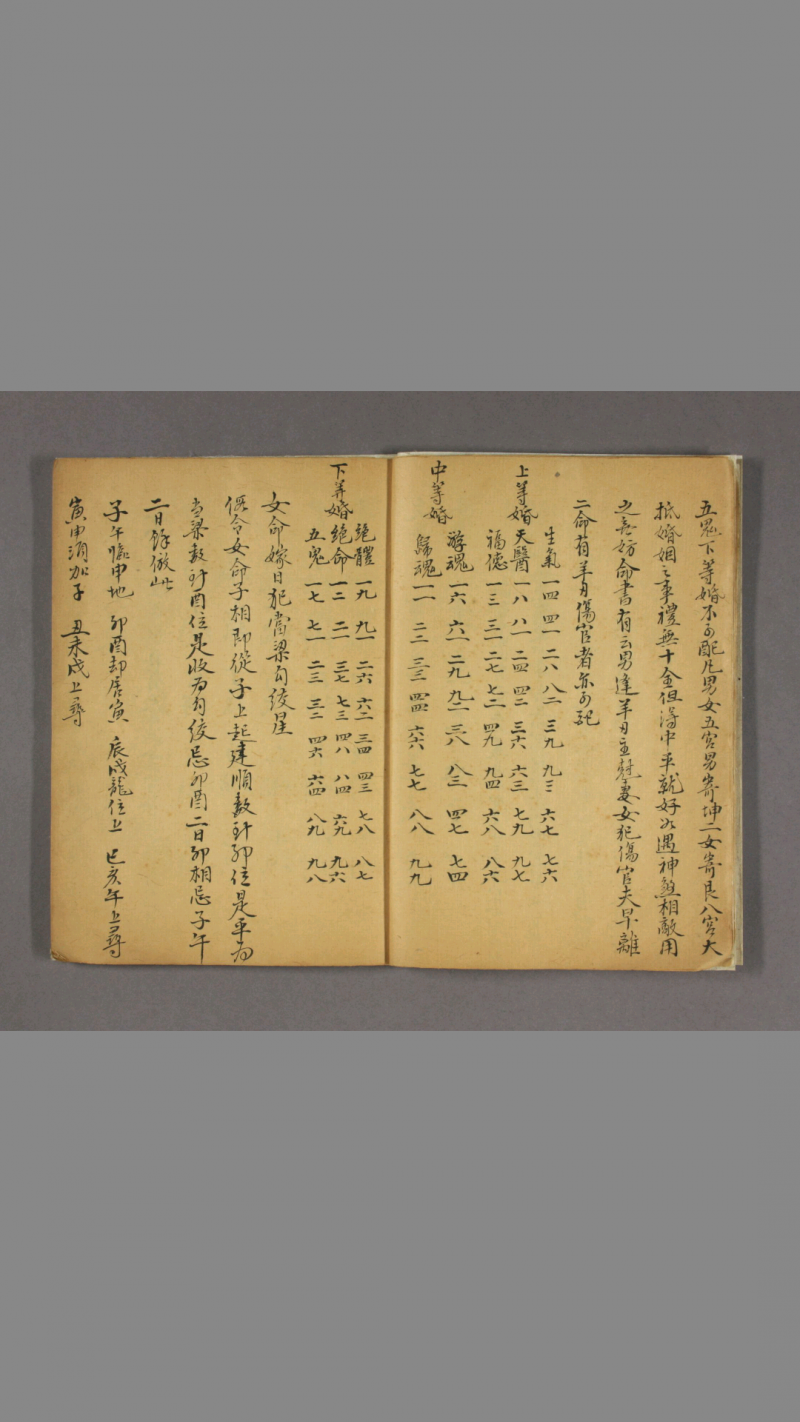 五鬼下等婚不可配凡男女五宮男寄坤二女寄艮八宮大
抵婚姻之事禮無十全但得中平就好如遇神煞相敵用
之無妨命書有云男逢羊刃主尅妻女犯傷官夫早離
二命有羊刃傷官者亦可配
生氣 一四 四一 二八 八二 三九 九三 六七 七六
上等婚 天醫 一八 八一 二四 四二 三六 六三 七九 九七
福德 一三 三一 二七 七二 四九 九四 六八 八六
遊魂 一六 六一 二九 九二 三八 八三 四七 七四
中等婚 歸魂 一一 二二 三三 四四 六六 七七 八八 九九
絕體 一九 九一 二六 六二 三四 四三 七八 八七
下等婚 絕命 一二 二一 三七 七三 四八 八四 六九 九六
五鬼 一七 七一 二三 三二 四六 六四 八九 九八
女命嫁日犯當梁勾絞星
假令女命子相即從子上起建順數到卯位是平為
当梁数到酉位是收為勾絞忌卯酉二日卯相忌子午
二日餘倣此
子午臨申地 卯酉却居寅 辰戌龍位上 巳亥午上尋
寅申須加子 丑未戌上尋